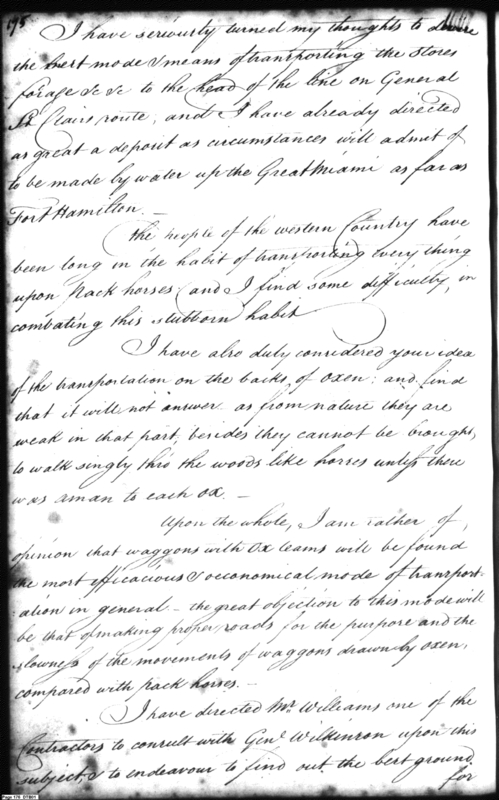 175
I have seriously turned my thoughts to devise
the best mode & means of transporting the Stores
forage &c &c to the head of the line on General
St Clairs route, and I have already directed
as great a deposit as circumstances will admit of
to be made by water up the Great Miami as far as
Fort Hamilton —
The people of the western Country have
been long in the habit of transporting every thing
upon Pack horses (and I find some difficulty, in
combating this stubborn habit
I have also duly considered your idea
of the transportation on the backs, of Oxen; and find
that it will not answer as from nature they are
weak in that part, besides they cannot be brought,
to walk singly thro the woods like horses unless there
was a man to each ox. —
Upon the whole, I am rather of,
opinion that waggons with Ox teams will be found
the most efficacious & oeconomical mode of transport-
ation in general — the great objection to this mode will
be that of making proper roads for the purpose and the
slowness of the movements of waggons drawn by oxen,
compared with pack horses. —
I have directed Mr Williams one of the
Contractors to consult with Genl Wilkinson upon this
subject, & to endeavour to find out the best ground
for